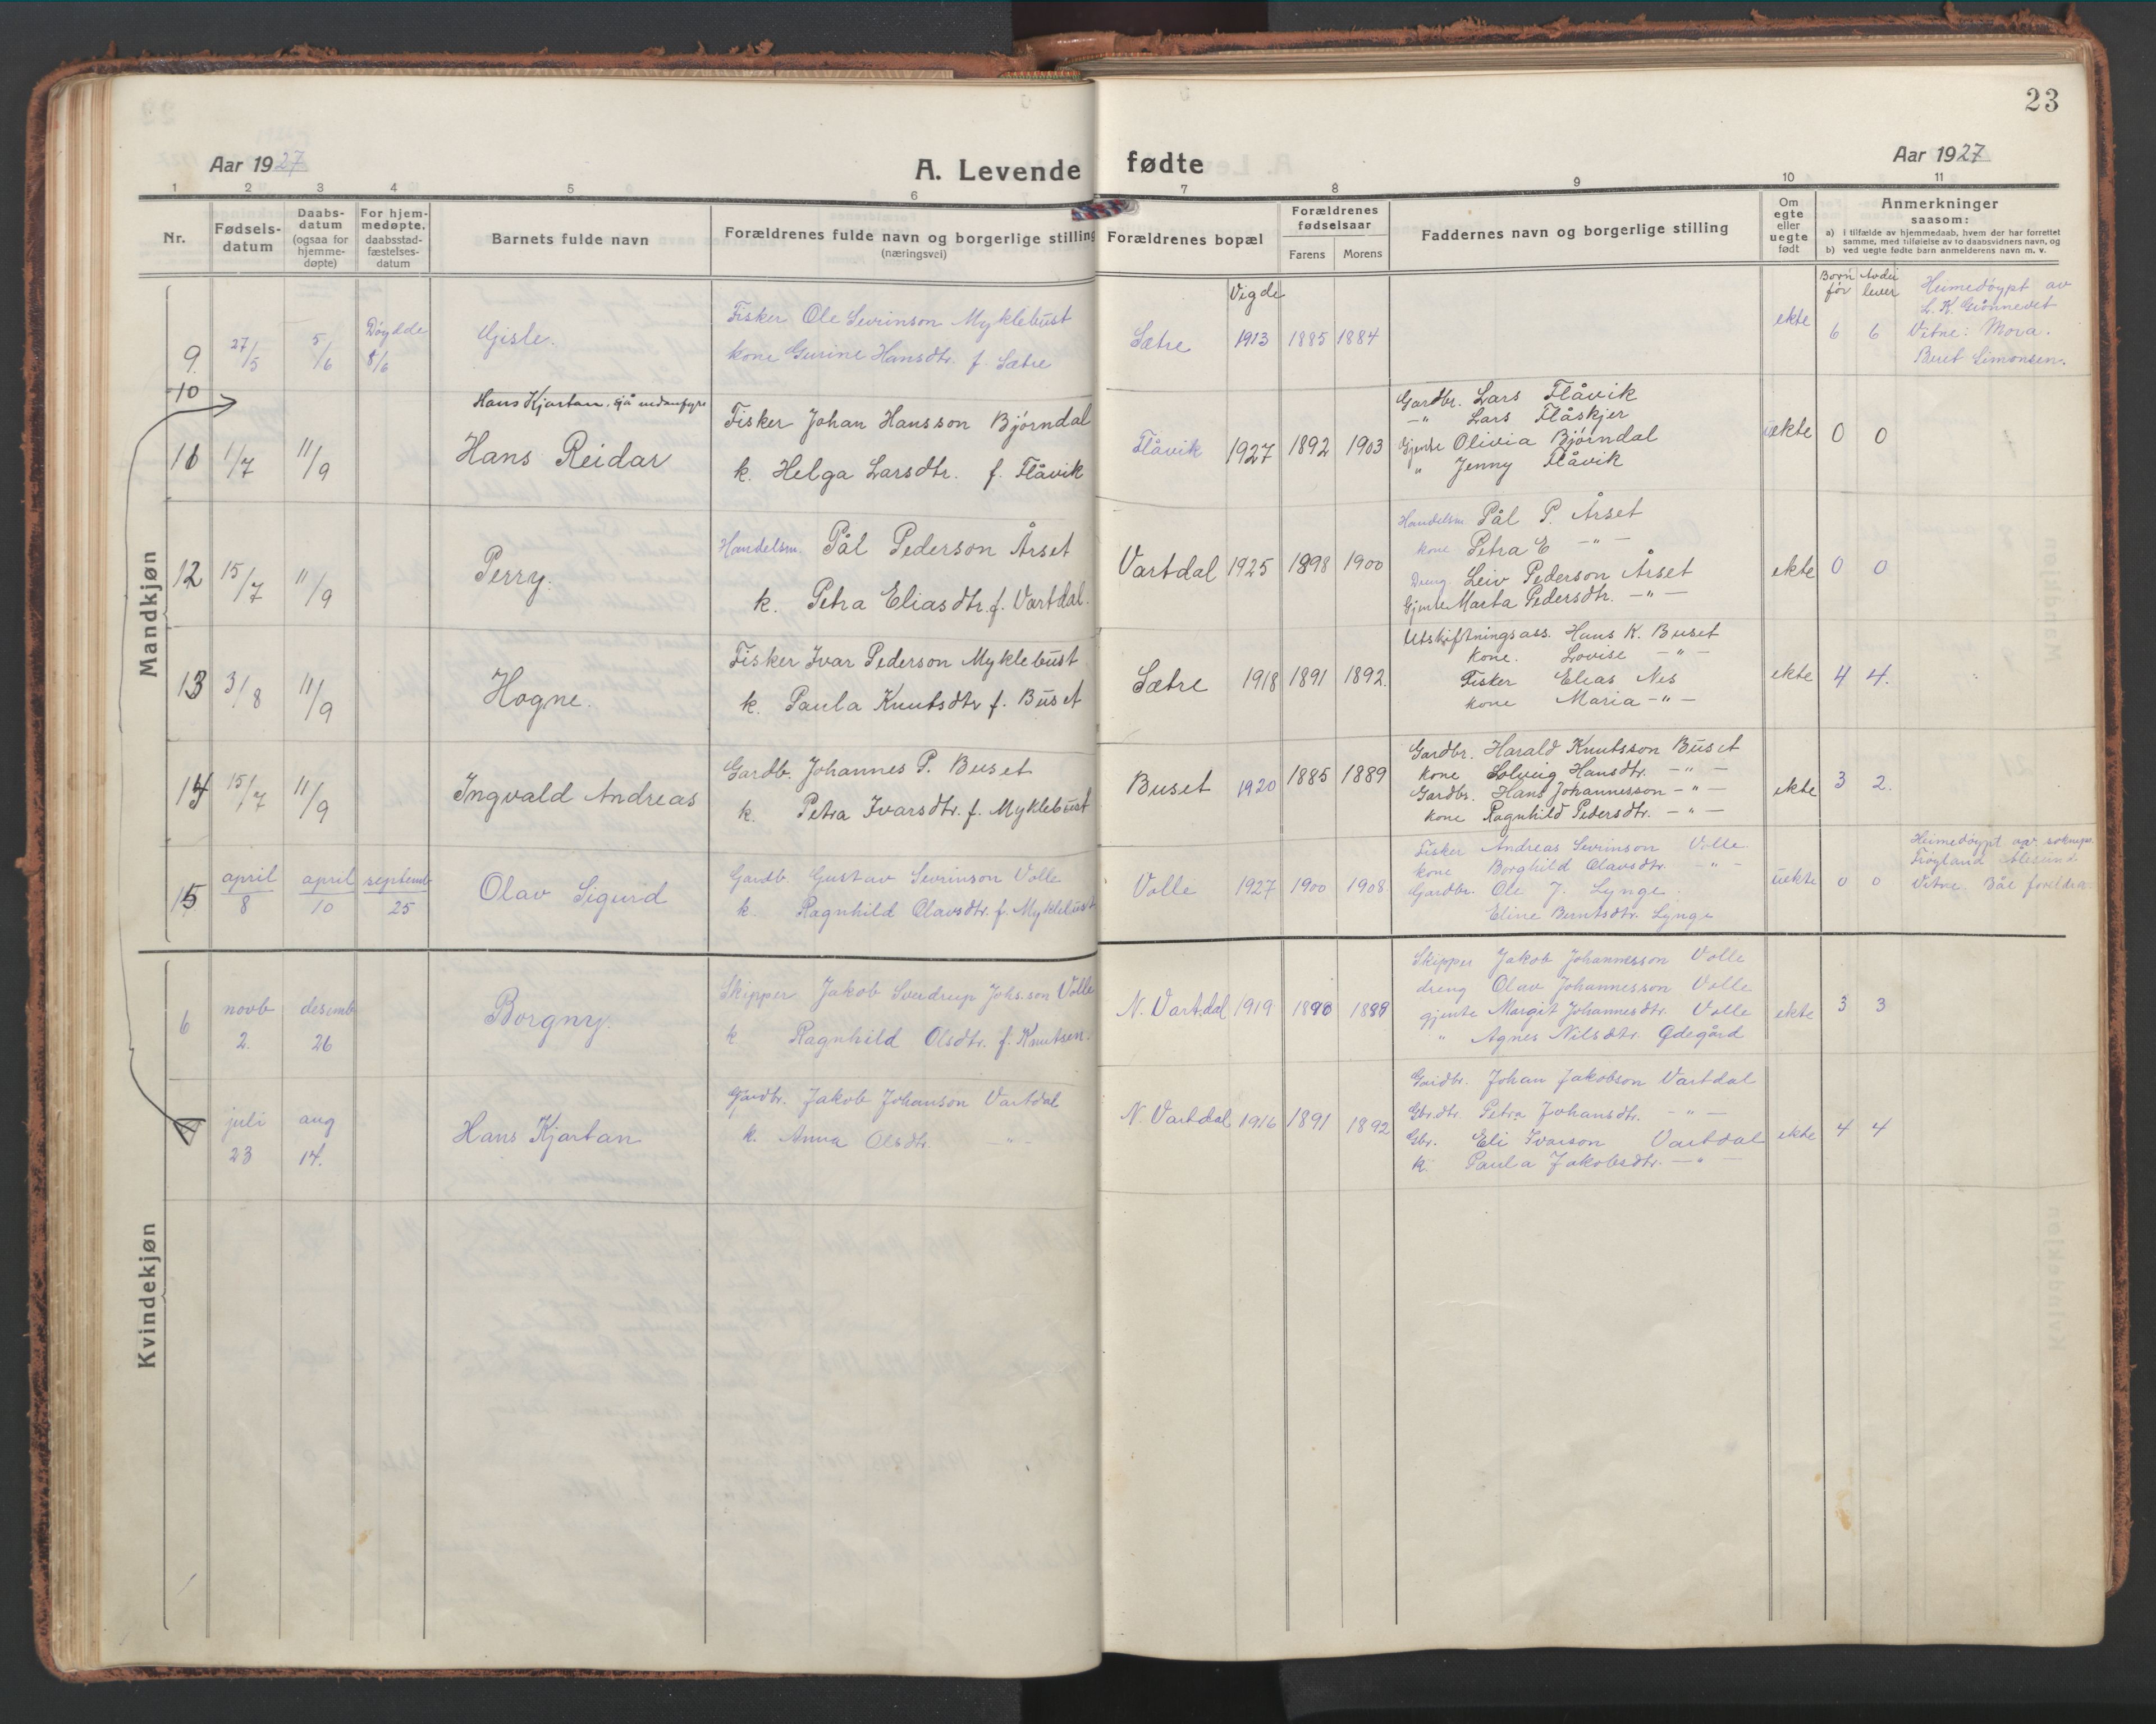 23
Aar 1927
A. Levende fødte
Aar 1927
1 2 3 4 5 6 7 8 9 10 11
Nr.
Fødsels-
datum
Daabs-
datum
(ogsaa for
hjemme-
døpte)
For hjem-
medøpte,
daabsstad-
fæstelses-
datum
Barnets fulde navn
Forældrenes fulde navn og borgerlige stilling
(næringsvei)
Forældrenes bopæl
Forældrenes
fødselsaar
Farens Morens
Faddernes navn og borgerlige stilling
Om
egte
eller
uegte
født
Anmerkninger
saasom:
a) i tilfælde av hjemmedaab, hvem der har forrettet
samme, med tilføielse av to daabsvidners navn, og
b) ved uegte fødte barn anmelderens navn m. v.
Vigde
Born før
lever
Mandkjøn
9. 27/5 5/6 Døypte 8/6
Gisle.
Fisker Ole Sevrinson Myklebust
kone Gurine Hansdtr. f. Sætre
Sætre 1913 1885 1884
ekte 6 6
Heimedøypt av
Vitne: Mora.
Berit Simonsen.
10
Hans Kjartan, sjå nedanfyre
11 1/7 11/9
Hans Reidar
Fisker Johan Hansson Bjørndal
k. Helga Larsdtr. f. Flåvik
Flåvik 1927 1892 1903
Gardbr. Lars Flåvik
-"- Lars Flåskjer
Gjente Olivia Bjørndal
" Jenny Flåvik
uekte 0 0
12 15/7 11/9
Perry.
Handelsm. Pål Pederson Årset
k. Petra Eliasdtr. f. Vartdal.
Vartdal 1925 1898 1900
Handelsm. Pål P. Årset
kone Petra E -"-
Dreng Leiv Pederson Årset
Gjente Marta Pedersdtr. -"-
ekte 0 0
13 3/8 11/9
Hogne.
Fisker Ivar Pederson Myklebust
k. Paula Knutsdtr f. Buset
Sætre 1918 1891 1892.
Utskiftningsass. Hans K. Buset
kone. Lovise -"-
Fisker Elias Nes
kone Maria -"-
ekte 4 4.
14 15/7 11/9
Ingvald Andreas
Gardb. Johannes P. Buset
k. Petra Ivarsdtr. f. Myklebust
Buset 1920 1885 1889
Gardbr. Harald Knutsson Buset
kone Solveig Hansdtr. -"-
Gardbr. Hans Johannesson -"-
kone Ragnhild Pedersdtr. -"-
ekte 3 2.
15 april 8 april 10 septemb 25
Olav Sigurd
Gardb. Gustav Sevrinson Volle
k. Ragnhild Olavsdtr. f. Myklebust
Volle 1927 1900 1908
Fisker Andreas Sevrinson Volle
kone Borghild Olavsdtr. -"-
Gardbr. Ole J. Lynge.
Eline Berntsdtr. Lynge
uekte 0 0
Heimedøypt av soknepr.
Frøyland Ålesund
Vitne Båe foreldra
Kvindekjøn
6 novb 2. desemb 26
Borgny.
Skipper Jakob Sverdrup Johs.son Volle
k Ragnhild Olsdtr. f. Knutsen.
N. Vartdal 1919 1890 1899
Skipper Jakob Johannesson Volle
dreng Olav Johannesson Volle
gjente Margit Johannesdtr. Volle
" Agnes Nilsdtr. Ødegård
ekte 3 3
juli 23 aug 14.
Hans Kjartan
Gardbr. Jakob Johanson Vartdal
k. Anna Olsdtr. -"-
N. Vartdal 1916 1891 1892
Gardbr. Johan Jakobson Vartdal
Gbr.dtr. Petra Johansdtr. -"-
Gbr. Eli Ivarson Vartdal
k. Paula Jakobsdtr. -"-
ekte 4 4